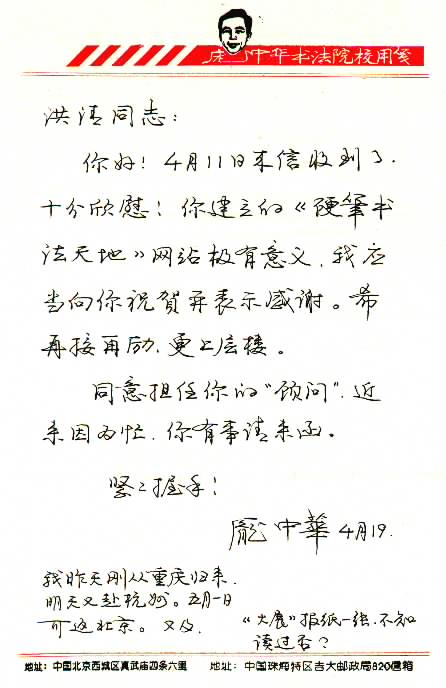 庞中华书法院校用笺
洪涛同志:
你好!4月11日来信收到了.
十分欣慰!你建立的《硬笔书
法天地》网站极有意义,我应
当向你祝贺并表示感谢。希
再接再励,更上层楼。
同意担任你的"顾问",近
来因为忙,你有事请来函。
紧紧握手!
龐中華 4月19.
我昨天刚从重庆归来,
明天又赴杭州。五月一日
可返北京。又及,
《大展》报纸一张,不知
读过否?
地址:中国北京西城区真武庙四条六里 地址:中国珠海特区吉大邮政局820信箱